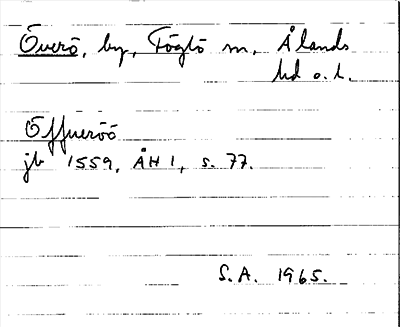 Överö, by, Föglö sn, Ålands
hd o. l.
Öffueröö
jb 1559, ÅH 1, s. 77.
S.A. 1965.